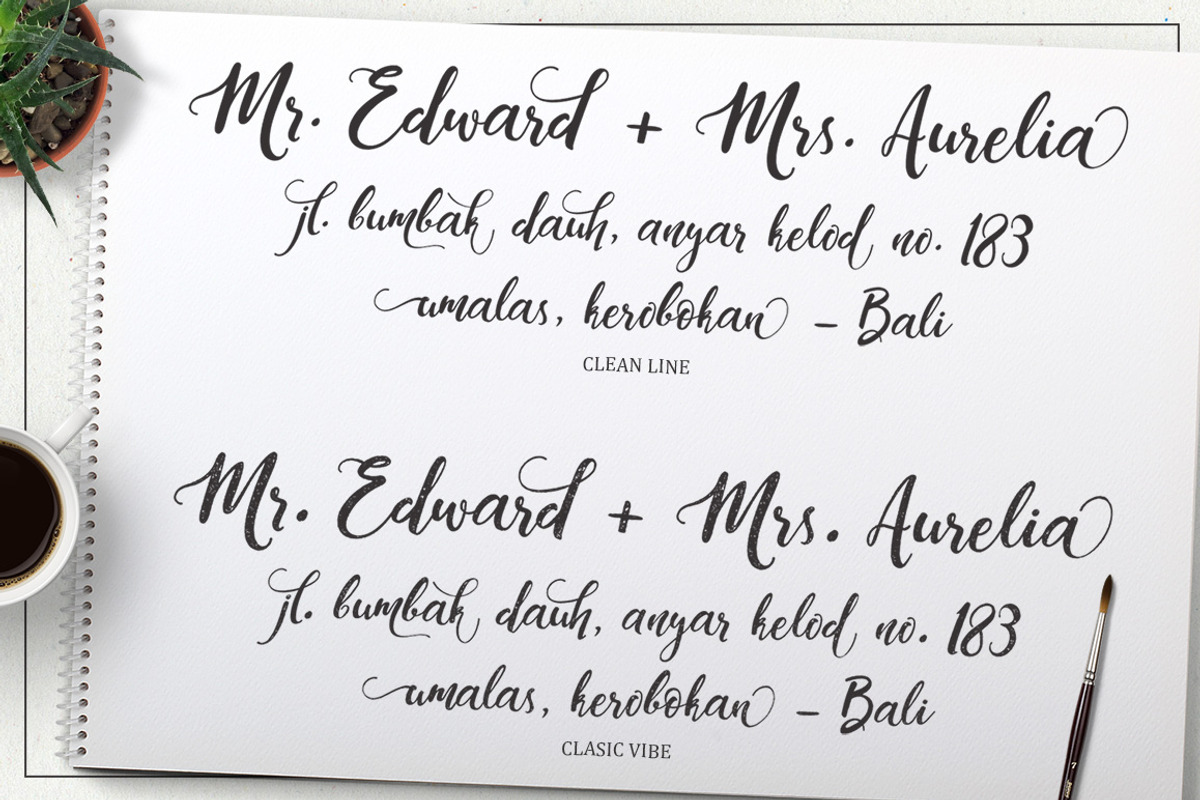 Mr. Edward + Mrs. Aurelia
jl. bumbak dauh, anyar kelod no. 183
umalas, kerobokan - Bali
CLEAN LINE
Mr. Edward + Mrs. Aurelia
jl. bumbak dauh, anyar kelod no. 183
umalas, kerobokan - Bali
CLASIC VIBE
7